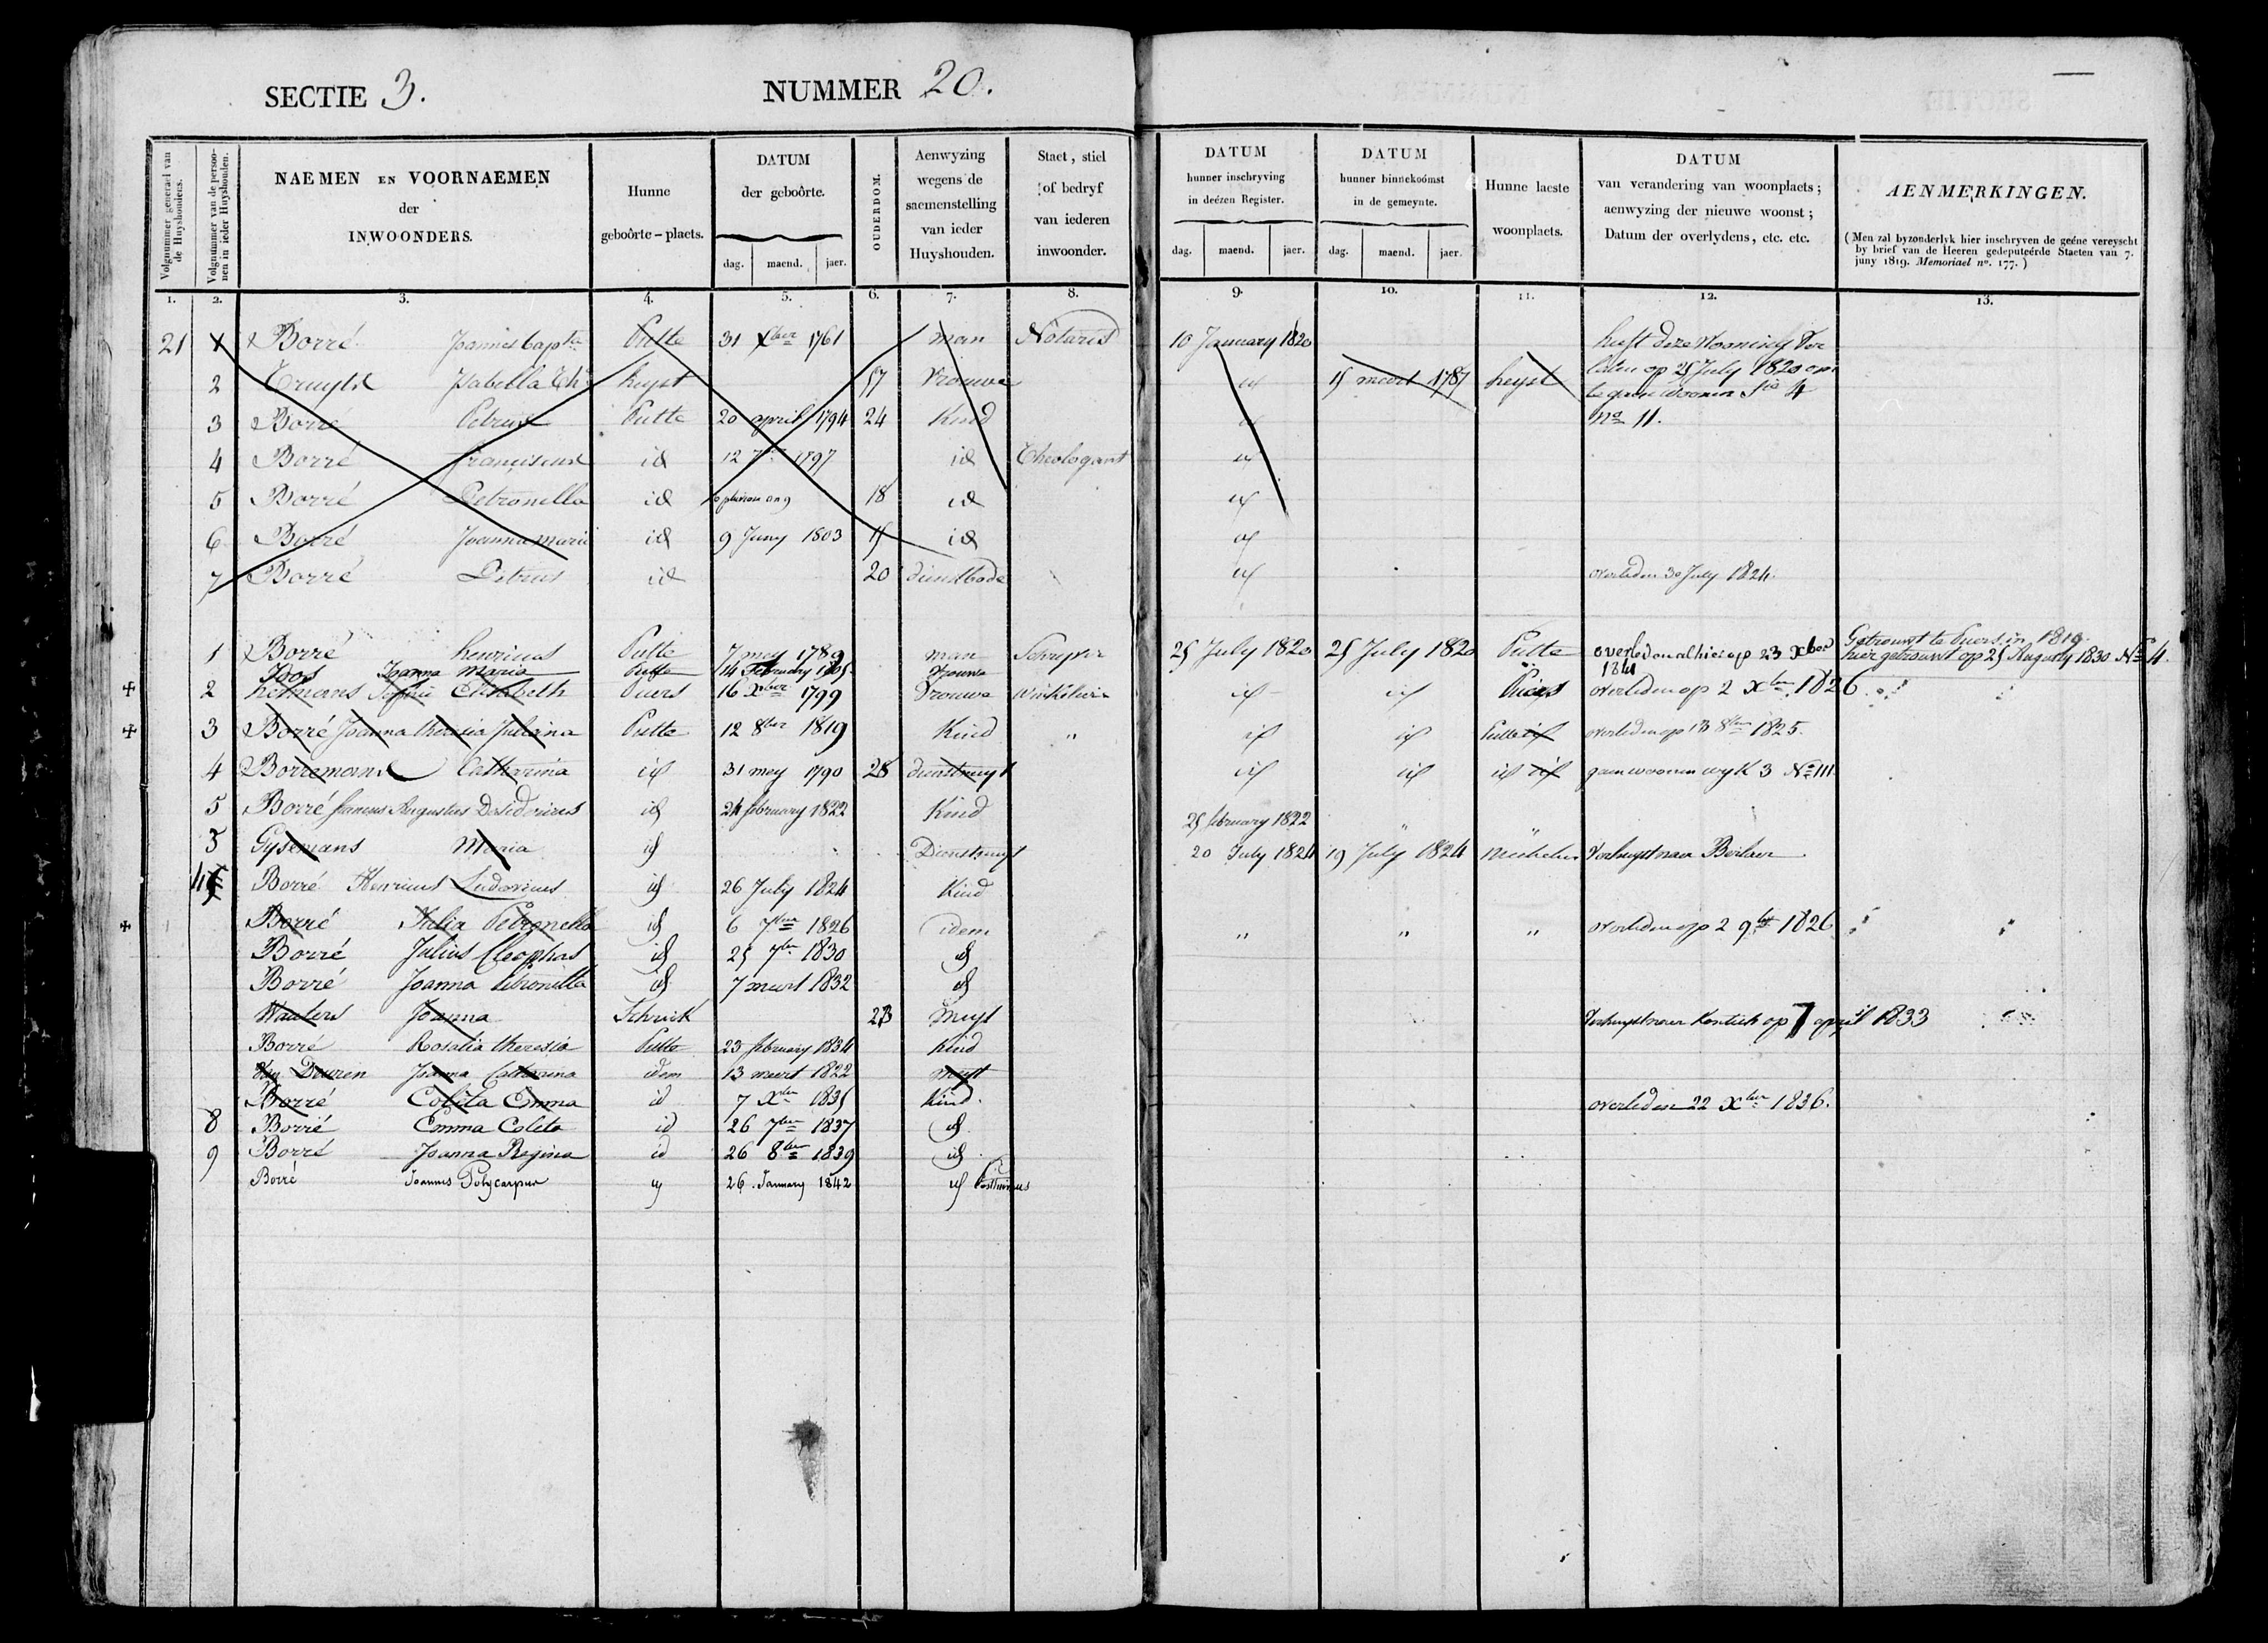 SECTIE 3. NUMMER 20.
Volgnummer generael van de Huyshouders.
Volgnummer van de persoonen in ieder Huyshouden.
NAEMEN EN VOORNAEMEN
der
INWOONDERS.
Hunne
geboôrte-plaets.
DATUM
der geboôrte.
dag. maend. jaer.
OUDERDOM.
Aenwyzing
wegens de
saemenstelling
van ieder
Huyshouden.
Staet, stiel
of bedryf
van iederen
inwoonder.
DATUM
hunner inschryving
in deézen Register.
dag. maend. jaer.
DATUM
hunner binnekoômst
in de gemeynte.
dag. maend. jaer.
Hunne laeste
woonplaets.
DATUM
van verandering van woonplaets;
aenwyzing der nieuwe woonst;
Datum der overlydens, etc. etc.
AENMERKINGEN.
(Men zal byzonderlyk hier inschryven de geéne vereyscht
by brief van de Heeren gedeputeérde Staeten van 7.
juny 1819. Memoriael nº. 177.)
1. 2. 3. 4. 5. 6. 7. 8. 9. 10. 11. 12. 13.
21 1 Borré Joannes bapta Putte 31 Xber 1761 man Notaris 10 January 1820 heeft deze Wooning Ver
2 Truyts Isabella Th heyst 57 Vrouwe id 15 meert 1787 heyst laten op 25 July 1820 om
te gaen woonen Sie 4
3 Borré Petrus Putte 20 april 1794 24 Kind id No 11.
4 Borré franciscus id 12 1797 id Theologant id
5 Borré Petronella id 18 id id
6 Borré Joanna maria id 9 Juny 1803 15 id id
7 Borré Petrus id 20 dienstbode id overleden 30 July 1824.
1 Borré henricus Putte 7 mey 1789 man Schryver 25 July 1820 25 July 1820 Putte overleden alhier op 23 Xber 1841 Getrouwt te Puers in 1819.
Joos Joanna Maria Putte 14 February 1805 Vrouwe hier getrouwt op 25 Augusty 1830 No 4.
2 heymans Sophie Elisabeth Puers 16 Xber 1799 Vrouwe Winkelierin id id Puers overleden op 2 Xber 1826
3 Borré Joanna theresia Juliana Putte 12 8ber 1819 Kind id id Putte id overleden op 13 8ber 1825.
4 Borremans Catharina id 31 mey 1790 28 dienstmeyt id id id id gaen woonen wyk 3 No 111.
5 Borré francus Augustus Desiderius id 24 february 1822 Kind 25 february 1822 " "
3 Gysemans Maria id Dienstmeyt 20 July 1824 19 July 1824 Mechelen Verhuyst naer Berlaer
4 Borré Henricus Ludovicus id 26 July 1824 Kind
Borré Julia Petronella id 6 7ber 1826 idem " " " overleden op 2 9ber 1826
Borré Julius Cleophas id 25 7ber 1830 id
Borré Joanna Petronilla id 7 meert 1832 id
Wauters Joanna Schriek 23 Meyt Verhuyst naer Kontich op 7 april 1833
Borré Rosalia theresia Putte 23 february 1834 Kind
Van Deuren Joanna Catharina idem 13 meert 1822 Meyt
Borré Coleta Emma id 7 Xber 1835 Kind overleden 22 Xber 1836.
8 Borré Emma Coleta id 26 7ber 1837 id
9 Borré Joanna Regina id 26 8ber 1839 id
Borré Joannes Polycarpus id 26 January 1842 id Posthumus